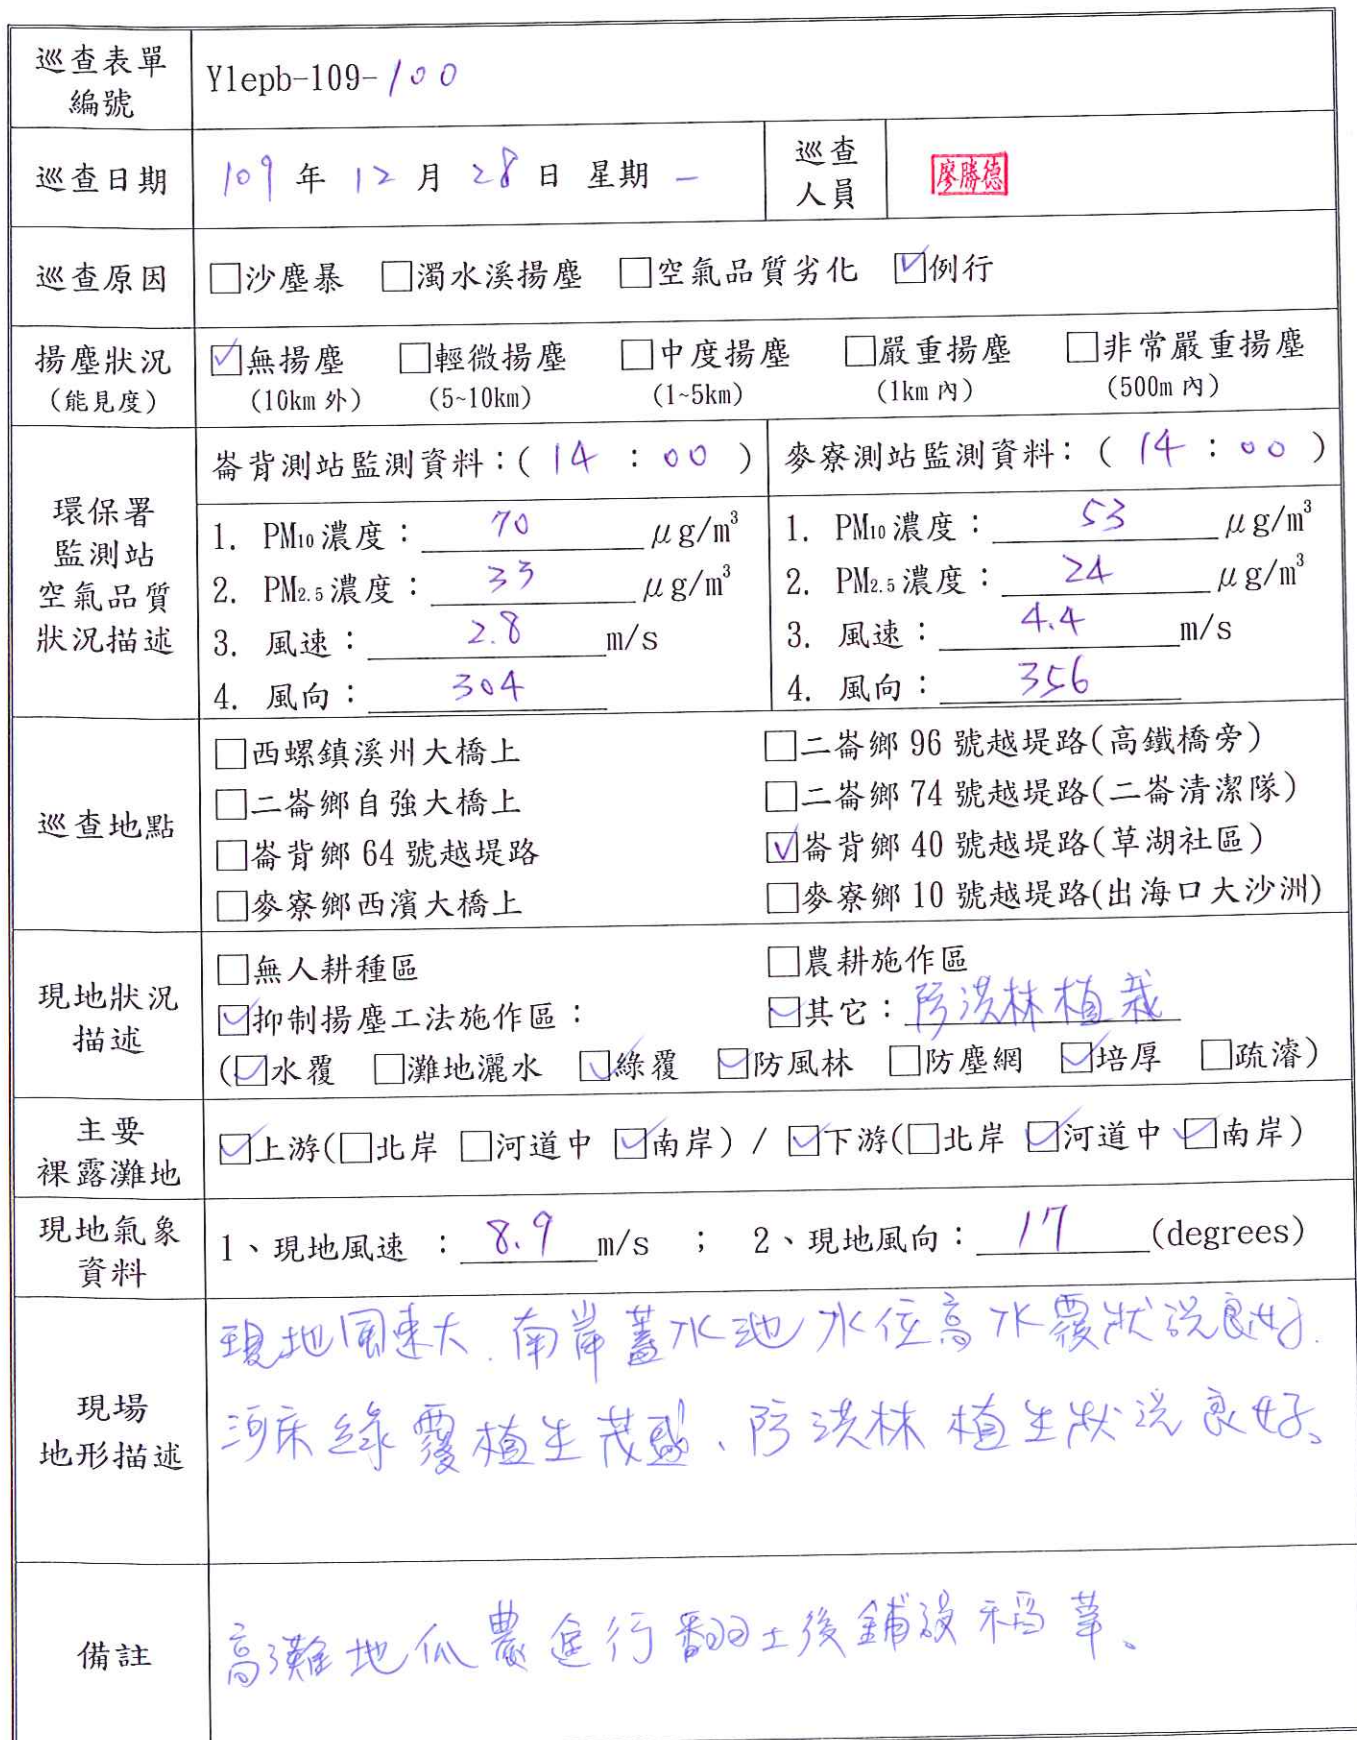 巡查表單
編號
Ylepb-109-100
巡查日期
109 年 12 月 28 日 星期 一
巡查
人員
廖勝德
巡查原因
□沙塵暴 □濁水溪揚塵 □空氣品質劣化 ☑例行
揚塵狀況
(能見度)
☑無揚塵 □輕微揚塵 □中度揚塵 □嚴重揚塵 □非常嚴重揚塵
(10km 外) (5~10km) (1~5km) (1km 內) (500m 內)
環保署
監測站
空氣品質
狀況描述
崙背測站監測資料：( 14 : 00 )
1. PM10 濃度：70 μg/m³
2. PM2.5 濃度：33 μg/m³
3. 風速：2.8 m/s
4. 風向：304
麥寮測站監測資料：( 14 : 00 )
1. PM10 濃度：53 μg/m³
2. PM2.5 濃度：24 μg/m³
3. 風速：4.4 m/s
4. 風向：356
巡查地點
□西螺鎮溪州大橋上 □二崙鄉 96 號越堤路(高鐵橋旁)
□二崙鄉自強大橋上 □二崙鄉 74 號越堤路(二崙清潔隊)
□崙背鄉 64 號越堤路 ☑崙背鄉 40 號越堤路(草湖社區)
□麥寮鄉西濱大橋上 □麥寮鄉 10 號越堤路(出海口大沙洲)
現地狀況
描述
□無人耕種區 □農耕施作區
☑抑制揚塵工法施作區： ☑其它：防洪林植栽
(☑水覆 □灘地灑水 ☑綠覆 ☑防風林 □防塵網 ☑培厚 □疏濬)
主要
裸露灘地
☑上游(□北岸 □河道中 ☑南岸) / ☑下游(□北岸 ☑河道中 ☑南岸)
現地氣象
資料
1、現地風速 ：8.9 m/s ； 2、現地風向：17 (degrees)
現場
地形描述
現地風速大、南岸蓄水池水位高水覆狀況良好、
河床綠覆植生茂盛、防洪林植生狀況良好。
備註
高灘地瓜農進行翻土後鋪設稻草、